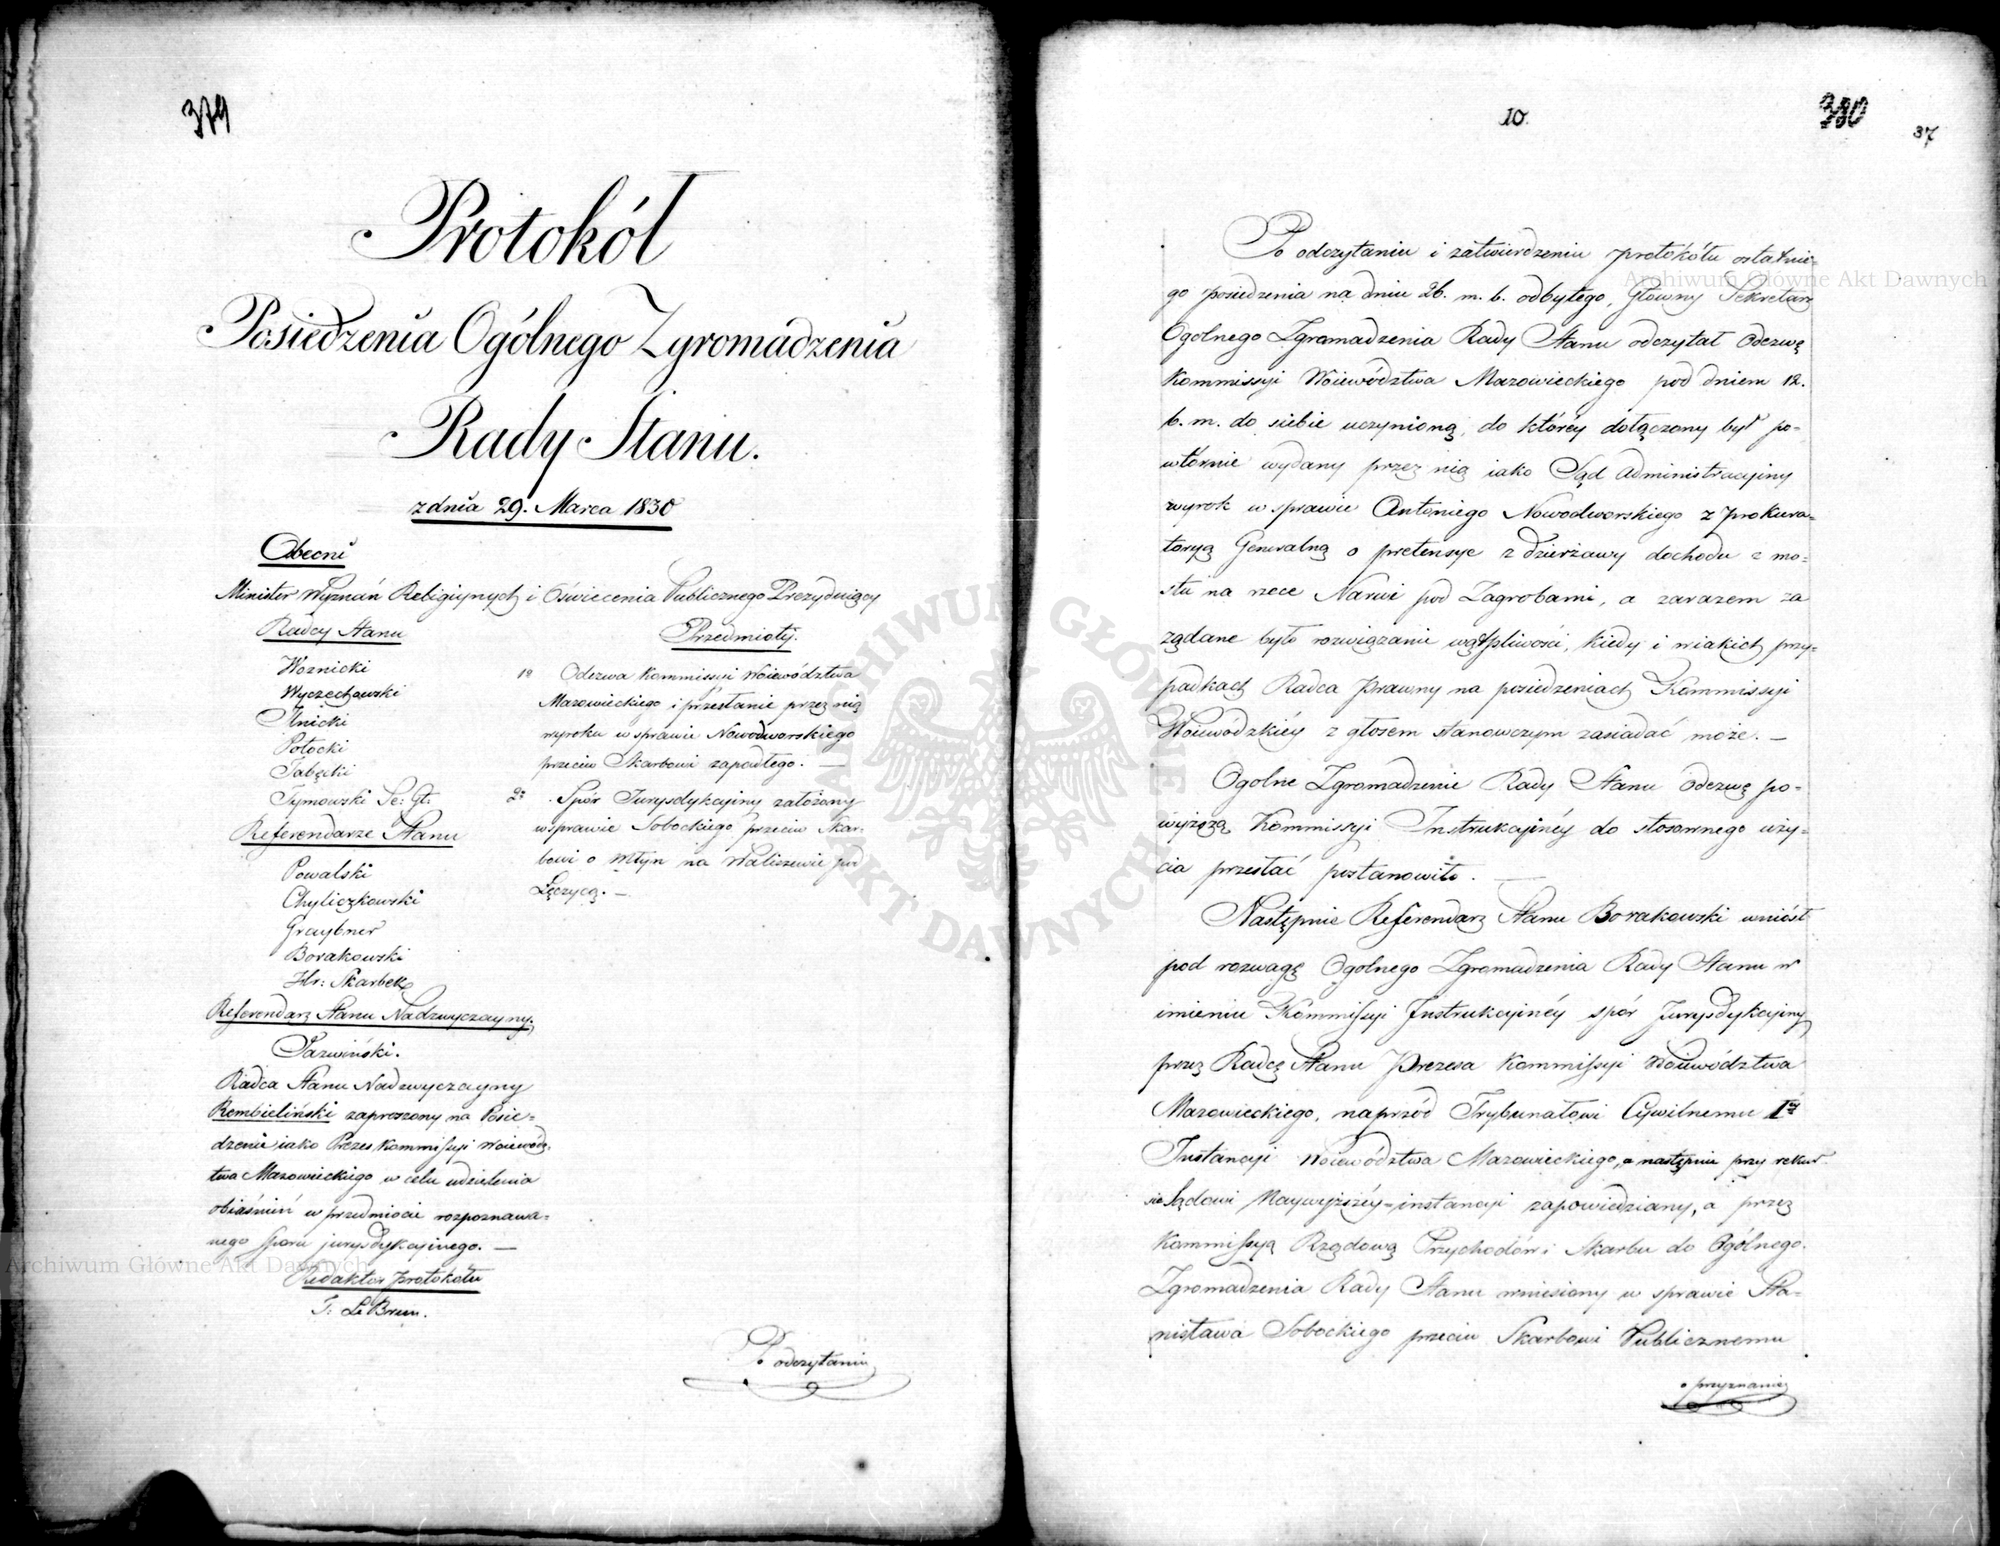 379
Protokół
Posiedzenia Ogólnego Zgromadzenia
Rady Stanu.
z dnia 29. Marca 1830
Obecni
Minister Wyznań Religiynych i Oświecenia Publicznego Prezyduiący
Radcy Stanu
Woznicki
Wyczechowski
Potocki
Tymowski Se: Gł.
Referendarze Stanu
Powalski
Chyliczkowski
Graybner
Borakowski
Hr: Skarbek
Referendarz Stanu Nadzwyczayny.
Radca Stanu Nadzwyczayny
Rembieliński zaproszony na Posie-
dzenie iako Prezes Kommissyi Woiewódz.
twa Mazowieckiego w celu udzielenia
obiaśnień w przedmiocie rozpoznawa-
nego sporu jurysdykcyinego. —
Redaktor protokołu
J: Le Brun.
Przedmioty.
1o Odezwa Kommissyi Woiewództwa
Mazowieckiego i przesłanie przez nią
wyroku w sprawie Nowodworskiego
przeciw Skarbowi zapadłego. —
2o Spór Jurysdykcyiny założony
w sprawie Sobockiego przeciw Skar-
bowi o młyn na Waliszewie pod
Łęczycą. —
Po odczytaniu
10.
380
37
Po odczytaniu i zatwierdzeniu protokółu ostatnie-
go posiedzenia na dniu 26. m. b. odbytego, Główny Sekretarz
Ogólnego Zgromadzenia Rady Stanu odczytał Odezwę
Kommissyi Woiewództwa Mazowieckiego pod dniem 12.
b. m. do siebie uczynioną, do któréy dołączony był po-
wtórnie wydany przez nią iako Sąd Administracyiny
wyrok w sprawie Antoniego Nowodworskiego z Prokura-
toryą Generalną o pretensye z dzierżawy dochodu z mo-
stu na rzece Narwi pod Zagrobami, a zarazem za
żądane było rozwiązanie wątpliwości, kiedy i w iakich przy-
padkach Radca Prawny na posiedzeniach Kommissyi
Woiewódzkiéy z głosem stanowczym zasiadać może. —
Ogólne Zgromadzenie Rady Stanu Odezwę po-
wyższą Kommissyi Instrukcyinéy do stosownego uży-
cia przesłać postanowiło. —
Następnie Referendarz Stanu Borakowski wniósł
pod rozwagę Ogólnego Zgromadzenia Rady Stanu w
imieniu Kommissyi Instrukcyinéy spór Jurysdykcyiny
przez Radcę Stanu Prezesa Kommissyi Woiewództwa
Mazowieckiego, naprzód Trybunałowi Cywilnemu Iéy
Instancyi Woiewództwa Mazowieckiego, a następnie przy rekur-
sie Sądowi Naywyższéy instancyi zapowiedziany, a przez
Kommissyą Rządową Przychodów i Skarbu do Ogólnego.
Zgromadzenia Rady Stanu wniesiony w sprawie Sta-
nisława Sobockiego przeciw Skarbowi Publicznemu
o przyznanie
Archiwum Główne Akt Dawnych
Archiwum Główne Akt Dawnych
ARCHIWUM GŁÓWNE AKT DAWNYCH